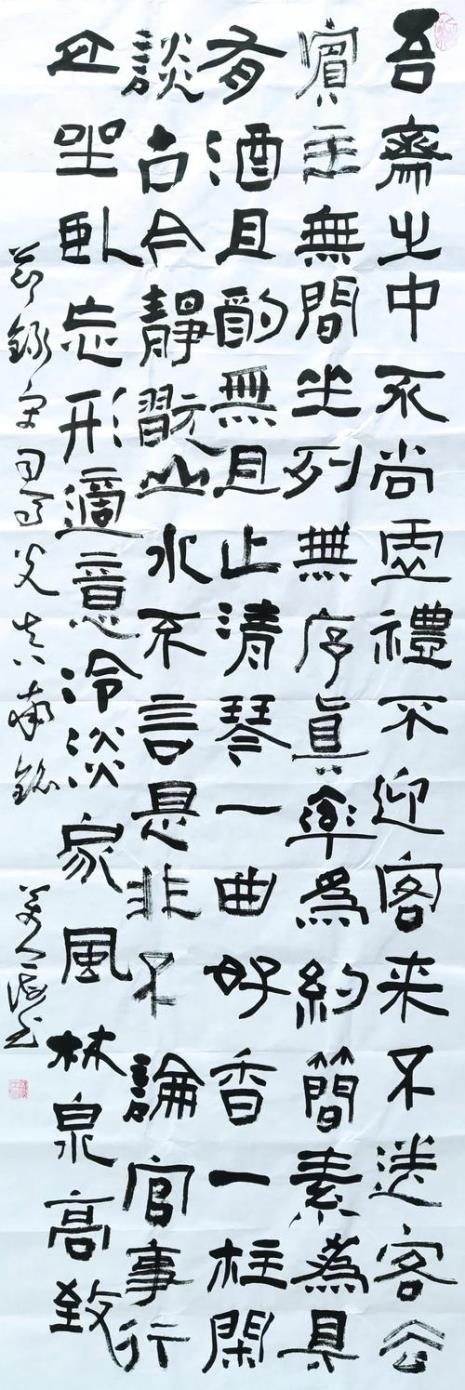 吾齋之中不尚虛禮不迎客来不送客去
賓主無間坐列無序真率爲約簡素爲具
有酒且酌無且止清琴一曲好香一柱閑
談古今靜翫山水不言是非不論官事行
立坐臥忘形適意冷淡家風林泉高致
節錄宋司馬光真率銘